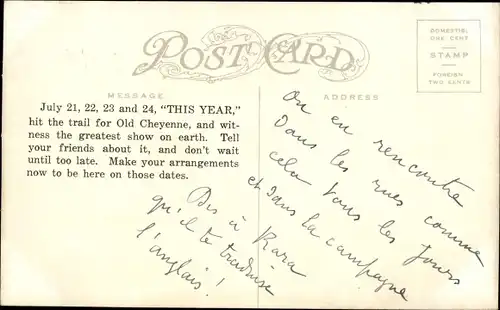 POST CARD
DOMESTIC,
ONE CENT
STAMP
FOREIGN
TWO CENTS
MESSAGE
ADDRESS
July 21, 22, 23 and 24, "THIS YEAR,"
hit the trail for Old Cheyenne, and wit-
ness the greatest show on earth. Tell
your friends about it, and don't wait
until too late. Make your arrangements
now to be here on those dates.
On en rencontre
dans les rues comme
cela tous les jours
et dans la campagne
Dis à Kara
qu'il te traduise
l'anglais!